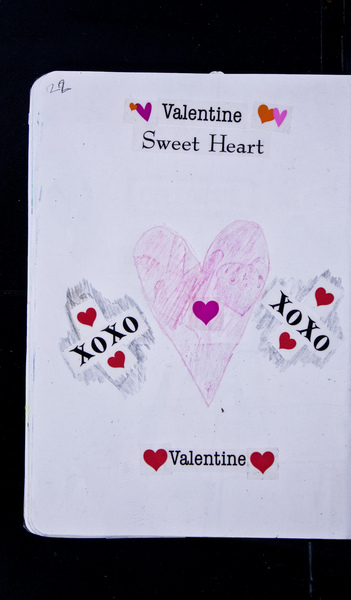 22
Valentine
Sweet Heart
XOXO
XOXO
Valentine